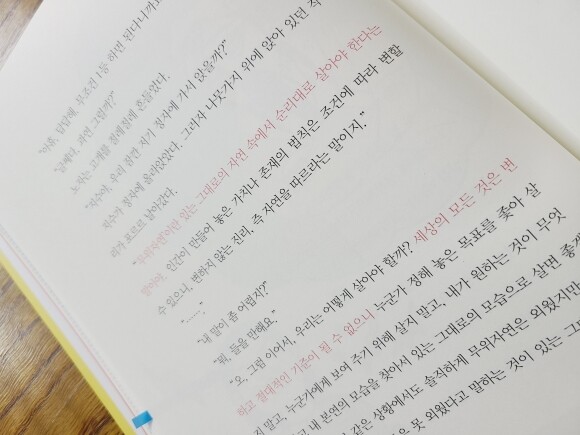 "아휴, 답답해. 무조건 1등 하면 된다니까요
"글쎄다. 과연 그럴까?"
노자는 고개를 절레절레 흔들었다.
"지수야, 우리 잠깐 저기 정자에 가서 앉을까?"
지수가 정자에 올라앉았다. 그러자 나뭇가지 위에 앉아 있던
리가 포르르 날아갔다.
"무위자연이란 있는 그대로의 자연 속에서 순리대로 살아야 한다는
말이야. 인간이 만들어 놓은 가치나 존재의 법칙은 조건에 따라 변할
수 있으니, 변하지 않는 진리, 즉 자연을 따르라는 말이지."
"……."
"내 말이 좀 어렵지?"
"뭐, 들을 만해요."
"오, 그럼 이어서, 우리는 어떻게 살아야 할까? 세상의 모든 것은 변
하고 절대적인 기준이 될 수 없으니 누군가 정해 놓은 목표를 좇아 살
지 말고, 누군가에게 보여 주기 위해 살지 말고, 내가 원하는 것이 무엇
고 내 본연의 모습을 찾아서 있는 그대로의 모습으로 살면 좋겠
같은 상황에서도 솔직하게 무위자연은 외웠지만
은 못 외웠다고 말하는 것이 있는 그